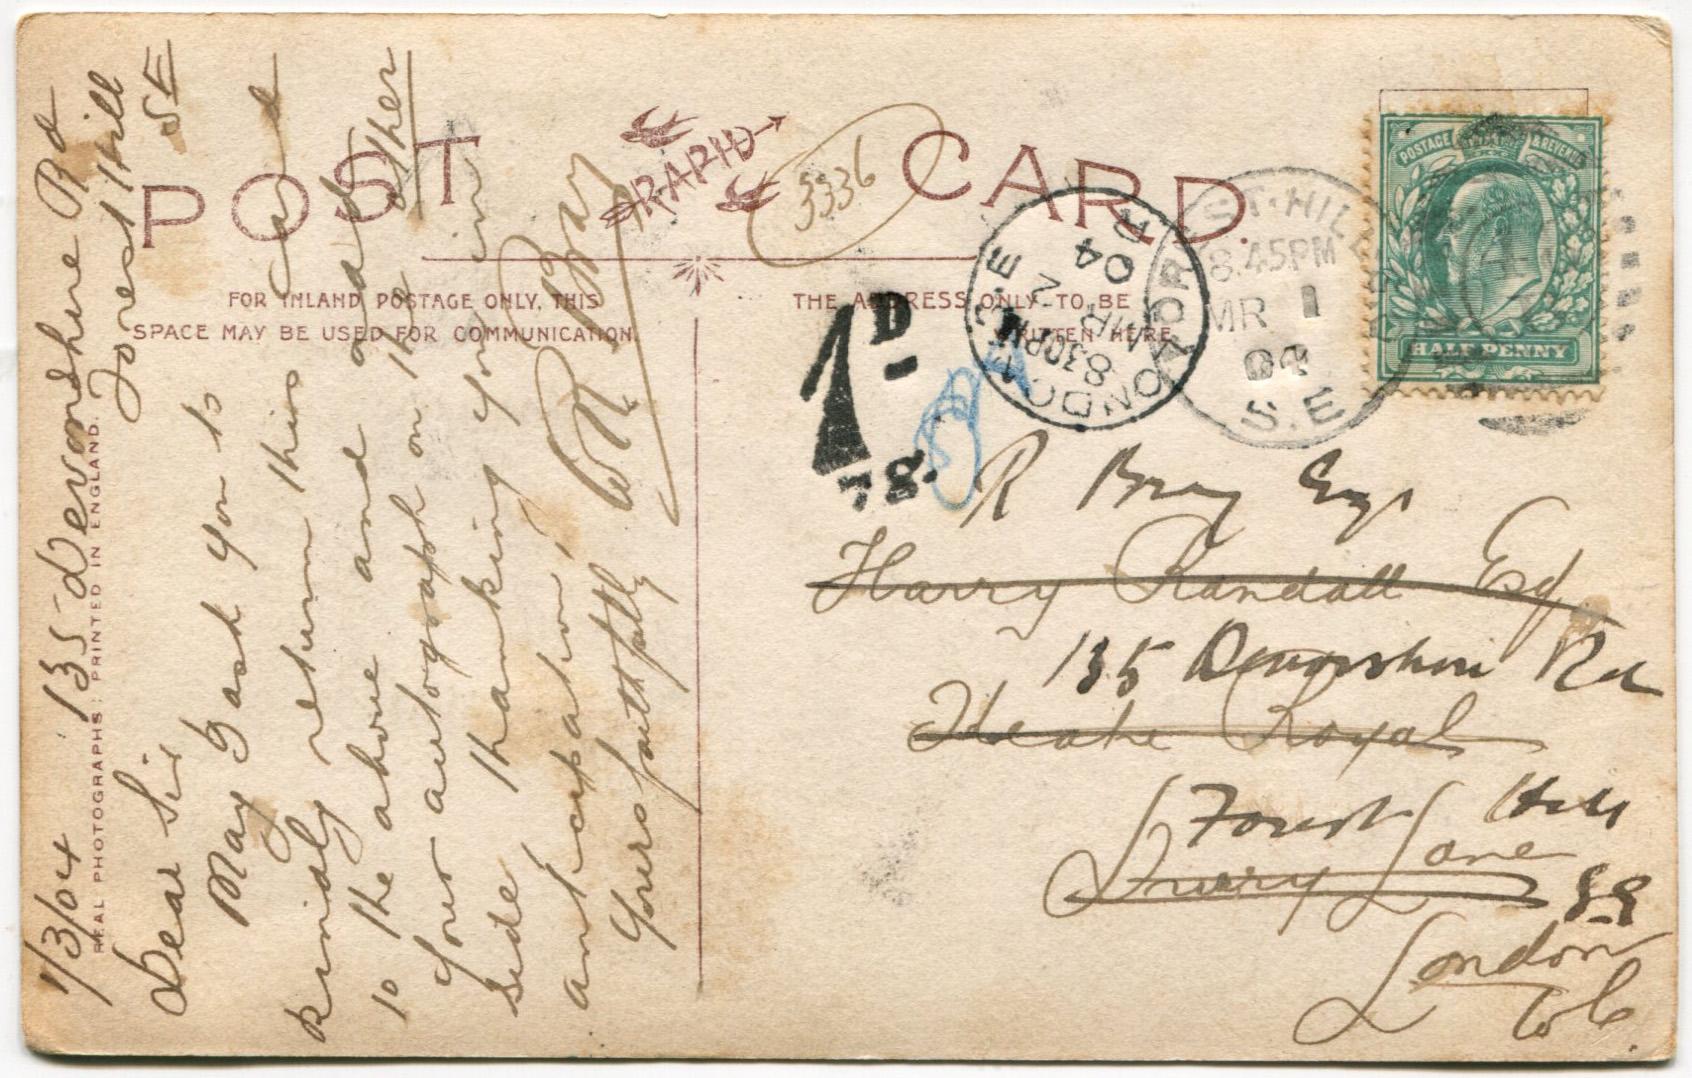 POST CARD.
RAPID
3336
FOR INLAND POSTAGE ONLY, THIS
SPACE MAY BE USED FOR COMMUNICATION.
THE ADDRESS ONLY TO BE
WRITTEN HERE
REAL PHOTOGRAPHS: PRINTED IN ENGLAND.
1/3/04 135 Devonshire Rd
Forest Hill
SE
Dear Sir
May I ask you to
kindly return this card
to the above and add
Your autograph on the other
side thanking you in
anticipation,
Yours faithfully
R Bray
POSTAGE & REVENUE
HALFPENNY
FOREST. HILL
8.45PM
MR 1
04
S.E
LONDON
8.30PM
MR 2
04
1D
R Bray Esq
Harry Randall Esq
135 Devonshire Rd
Theatre Royal
Forest Hill
Drury Lane
SE
London
WC.